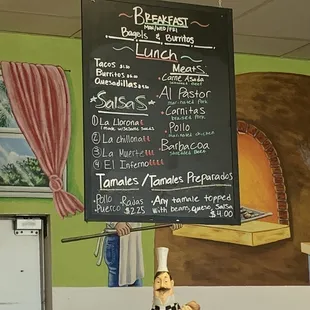 Breakfast
MON/WED/FRI
Bagels & Burritos
Lunch
Tacos
Burritos
Quesadillas
Salsas
① La Llorona
② La chillona
③ La Muerte
④ El Infierno
Meats
Carne Asada
Al Pastor
marinated Pork
Carnitas
braised Pork
Pollo
marinated chicken
Barbacoa
shredded Beef
Tamales / Tamales Preparados
Pollo
Puerco
Rajas
$2.25
Any tamale topped
with beans, queso, salsa
$4.00